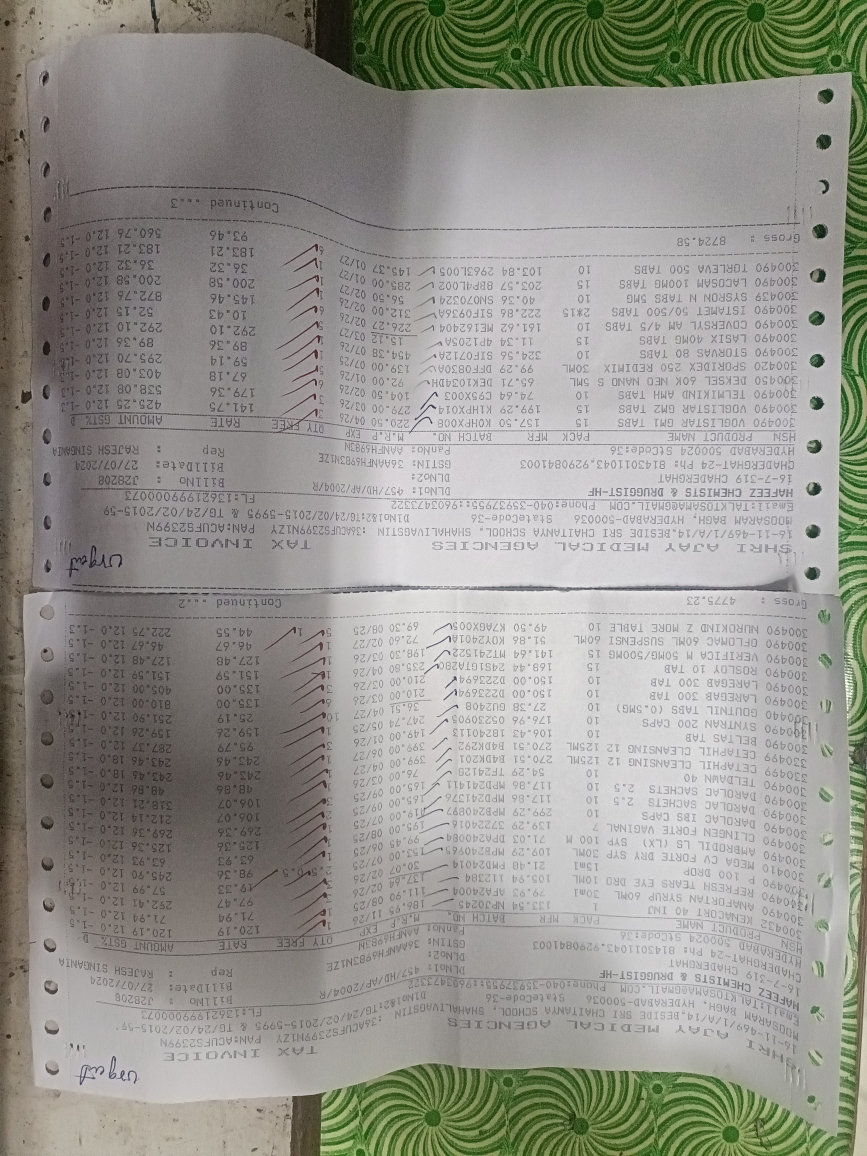 Urgent
SHRI AJAY MEDICAL AGENCIES TAX INVOICE
16-11-469/1/A/14,BESIDE SRI CHAITANYA SCHOOL, SHAHLIVASTIN :36ACUFS2399N1ZY PAN:ACUFS2399N
MOOSARAM BAGH, HYDERABAD-500036 StateCode-36 DlNo1&2:TG/24/02/2015-5995 & TG/24/02/2015-59
FL:13621999000073
HAFEEZ CHEMISTS & DRUGGIST-HF DLNo1: 457/HD/AP/2004/R BillNo : J28208
16-7-319 CHADERGHAT DLNo2: BillDate: 27/07/2024
CHADERGHAT-24 Ph: 8143011043,9290841003 GSTIN: 36AANFH6983N1ZE Rep : RAJESH SINGANIA
HYDERABAD 500024 StCode:36 PanNo: AANFH6983N
HSN PRODUCT NAME PACK MFR BATCH NO. M.R.P EXP QTY FREE RATE AMOUNT GST% D
300432 KENACORT 40 INJ 1 133.54 NPJ0245 186.95 11/26 1 120.19 120.19 12.0 -1.5
300490 ANAFORTAN SYRUP 60ML 30ml 79.93 AFA24004 111.90 08/25 1 71.94 71.94 12.0 -1.5
300490 REFRESH TEARS EYE DRO 10ML 105.94 112384 137.64 02/26 3 97.47 292.41 12.0 -1.5
300490 P 100 DROP 15ml 21.48 PMD24014 30.07 02/26 3 19.33 57.99 12.0 -1.5
300410 MEGA CV FORTE DRY SYP 30ML 109.29 MPB240965 153.00 07/25 2.5 0.5 98.36 245.90 12.0 -1.5
300490 AMBRODIL LS (LX) SYP 100 M 71.03 APA24084 99.45 1 63.93 63.93 12.0 -1.5
300490 CLINGEN FORTE VAGINAL 7 139.29 37224016 195.00 1 125.36 125.36 12.0 -1.5
300490 DAROLAC IBS CAPS 10 299.29 MPB240897 419.00 1 269.36 269.36 12.0 -1.5
300490 DAROLAC SACHETS 2.5 10 117.86 MPD241376 165.00 2 106.07 212.14 12.0 -1.5
300490 DAROLAC SACHETS 2.5 10 117.86 MPD241411 165.00 3 106.07 318.21 12.0 -1.5
300490 TELDAWN 40 10 54.29 TP24128 76.00 03/26 1 48.86 48.86 12.0 -1.5
330499 CETAPHIL CLEANSING 12 125ML 270.51 B4DK201 399.00 04/27 1 243.46 243.46 18.0 -1.5
330499 CETAPHIL CLEANSING 12 125ML 270.51 B4DK292 399.00 06/27 1 243.46 243.46 18.0 -1.5
300490 BELTAS TAB 10 106.43 1B240013 149.00 01/26 3 95.79 287.37 12.0 -1.5
300490 SYNTRAN 200 CAPS 10 176.96 05323905 247.74 05/25 1 159.26 159.26 12.0 -1.5
300440 GOUTNIL TABS (0.5MG) 10 27.38 GU2408 36.51 04/27 10 25.19 251.90 12.0
300490 LAREGAB 300 TAB 10 150.00 D223694 210.00 03/26 6 135.00 810.00 12.0 -1.5
300490 LAREGAB 300 TAB 10 150.00 D223694 210.00 03/26 3 135.00 405.00 12.0 -1.5
300490 ROBLOY 10 TAB 15 168.44 24SB1TA280 235.80 04/26 1 151.59 151.59 12.0 -1.5
300490 VERIFICA M 50MG/500MG 15 141.64 MT241522 198.30 03/26 1 127.48 127.48 12.0 -1.5
300490 OFLOMAC 60ML SUSPENSI 60ML 51.86 KOY2401A 72.60 02/27 1 46.67 46.67 12.0 -1.5
300490 NUROKIND Z MORE TABLE 10 49.50 K7AGX005 69.30 08/25 5 1 44.55 222.75 12.0 -1.3
Gross : 4775.23 Continued ...2
Urgent
SHRI AJAY MEDICAL AGENCIES TAX INVOICE
16-11-469/1/A/14,BESIDE SRI CHAITANYA SCHOOL, SHAHLIVASTIN :36ACUFS2399N1ZY PAN:ACUFS2399N
MOOSARAM BAGH, HYDERABAD-500036 StateCode-36 DlNo1&2:TG/24/02/2015-5995 & TG/24/02/2015-59
Email:TALKTOSAMA@GMAIL.COM Phone:040-35937955::9603473322 FL:13621999000073
HAFEEZ CHEMISTS & DRUGGIST-HF DLNo1: 457/HD/AP/2004/R BillNo : J28208
16-7-319 CHADERGHAT DLNo2: BillDate: 27/07/2024
CHADERGHAT-24 Ph: 8143011043,9290841003 GSTIN: 36AANFH6983N1ZE Rep : RAJESH SINGANIA
HYDERABAD 500024 StCode:36 PanNo: AANFH6983N
HSN PRODUCT NAME PACK MFR BATCH NO. M.R.P EXP QTY FREE RATE AMOUNT GST% D
300490 VOGLISTAR GM1 TABS 15 157.50 KOHPX008 220.50 04/26 3 141.75 425.25 12.0 -1.3
300490 VOGLISTAR GM2 TABS 15 199.29 KIHPX014 279.00 03/26 3 179.36 538.08 12.0 -1.5
300490 TELMIKIND AMH TABS 10 74.64 C95KX003 104.50 02/26 67.18 403.08 12.0 -1.5
300450 DEKSEL 60K NEO NANO S 5ML 65.71 DEK1034DH 92.00 01/26 5 59.14 295.70 12.0 -1.5
300420 SPORIDEX 250 REDIMIX 30ML 99.29 DFD0830A 139.00 07/25 1 89.36 89.36 12.0 -1.5
300490 STORVAS 80 TABS 10 324.56 SIF0712A 454.38 1 292.10 292.10 12.0 -1.5
300490 LASIX 40MG TABS 15 11.34 AP1205A 15.12 03/27 5 10.43 52.15 12.0 -1.5
300490 COVERSYL AM 4/5 TABS 10 161.62 ME162404 226.27 02/26 6 145.45 872.76 12.0 -1.5
300490 ISTAMET 50/500 TABS 2*15 222.86 SIF0936A 312.00 1 200.58 200.58 12.0 -1.5
300439 SYSRON N TABS 5MG 10 40.36 SN070324 56.50 02/27 1 36.32 36.32 12.0 -1.5
300490 LACOSAM 100MG TABS 15 203.57 BBP4L002 285.00 01/27 1 183.21 183.21 12.0 -1.5
300490 TORLEVA 500 TABS 10 103.84 2963L005 145.37 01/27 6 93.46 560.76 12.0 -1.5
Gross : 8724.58 Continued ...3